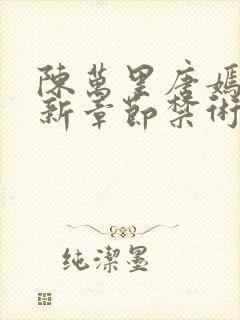 陳萬里唐嫣
新章節禁術
純潔墨